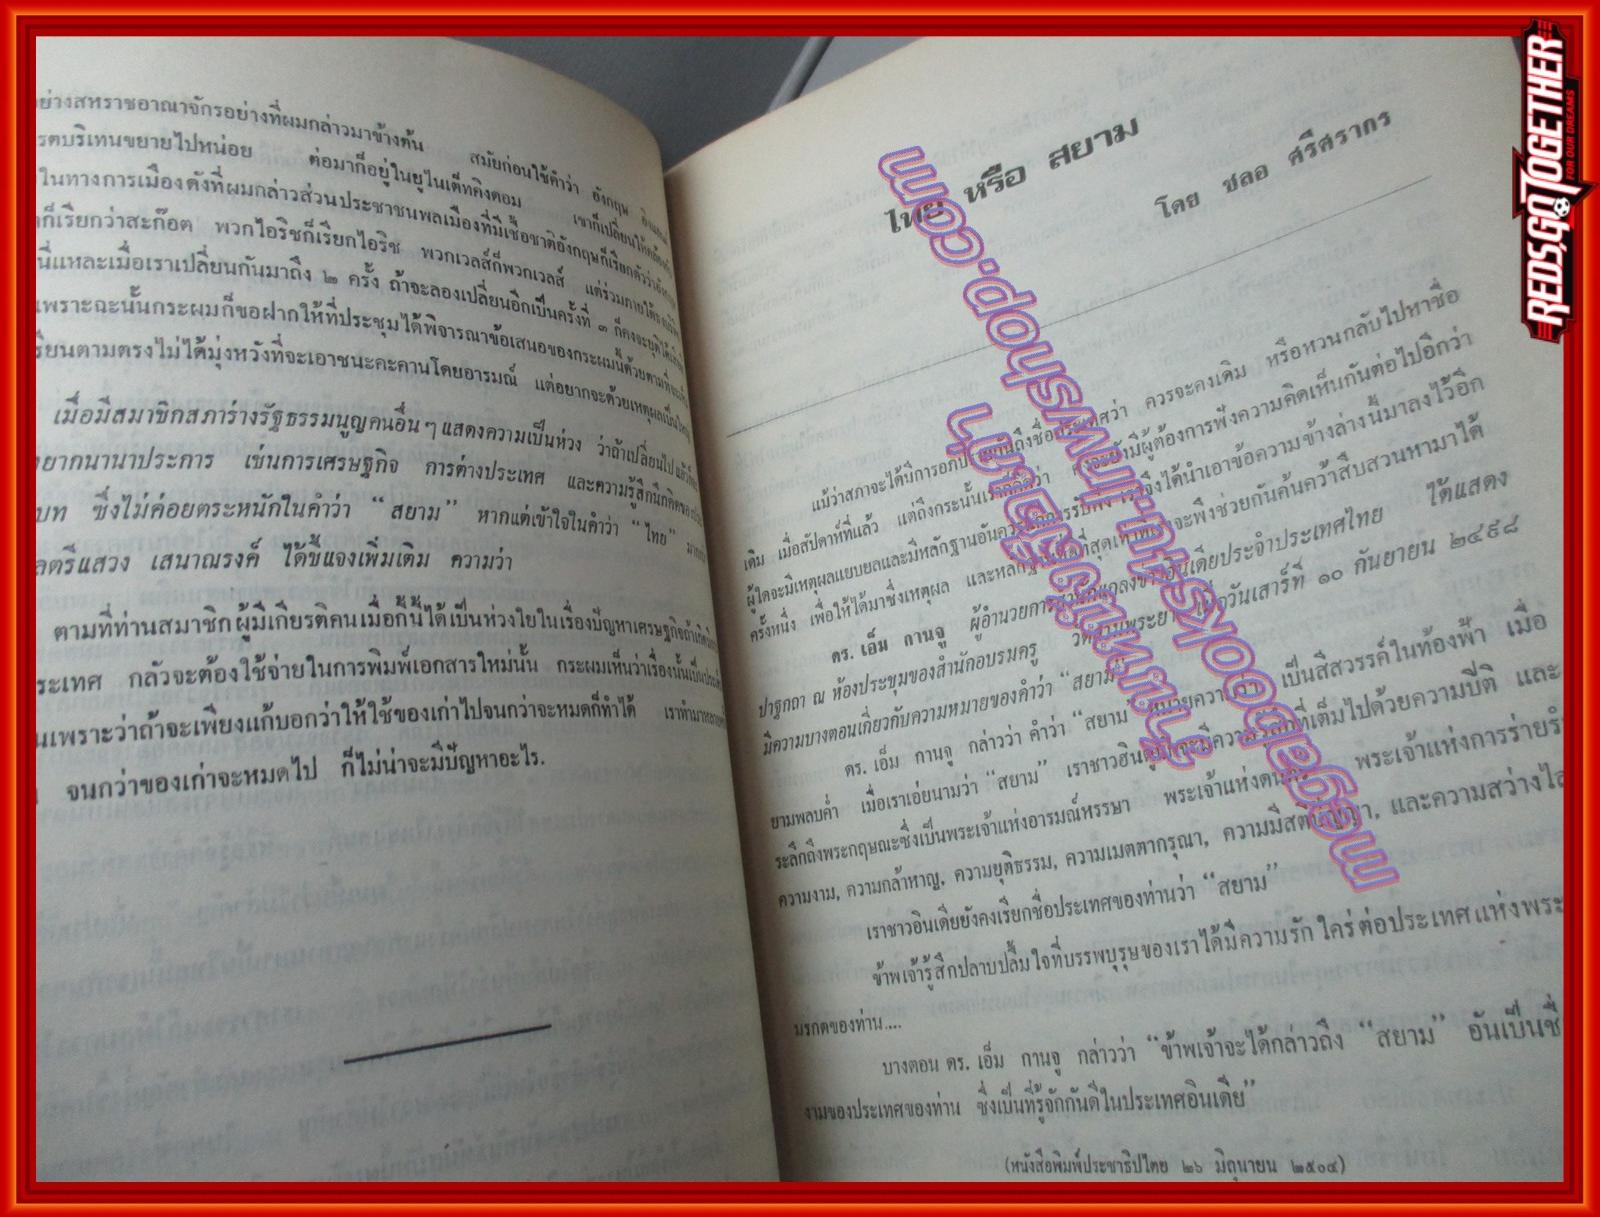 ย่างสหราชอาณาจักรอย่างที่ผมกล่าวมาข้างต้น สมัยก่อนใช้คำว่า อังกฤษ
รตบริเทนขยายไปหน่อย ต่อมาก็อยู่ในยูไนเต็ทคิงดอม เขาก็เปลี่ยนให้
ในทางการเมืองดังที่ผมกล่าวส่วนประชาชนพลเมืองที่มีเชื้อชาติอังกฤษก็เรียกตัวว่าอังกฤษ
ก็เรียกว่าสะก๊อต พวกไอริชก็เรียกไอริช พวกเวลส์ก็พวกเวลส์ แต่ร่วมภายใต้
นี่แหละเมื่อเราเปลี่ยนกันมาถึง ๒ ครั้ง ถ้าจะลองเปลี่ยนอีกเป็นครั้งที่ ๓ ก็คงจะยุติได้
เพราะฉะนั้นกระผมก็ขอฝากให้ที่ประชุมได้พิจารณาข้อเสนอของกระผมนี้ด้วยตามที่
รียนตามตรงไม่ได้มุ่งหวังที่จะเอาชนะคะคานโดยอารมณ์ แต่อยากจะด้วยเหตุผลเป็น
เมื่อมีสมาชิกสภาร่างรัฐธรรมนูญคนอื่นๆ แสดงความเป็นห่วง ว่าถ้าเปลี่ยนไปแล้ว
ยากนานาประการ เช่นการเศรษฐกิจ การต่างประเทศ และความรู้สึกนึกคิดของ
บท ซึ่งไม่ค่อยตระหนักในคำว่า “สยาม” หากแต่เข้าใจในคำว่า “ไทย”
ลตรีแสวง เสนาณรงค์ ได้ชี้แจงเพิ่มเติม ความว่า
ตามที่ท่านสมาชิกผู้มีเกียรติคนเมื่อกี้นี้ได้เป็นห่วงใยในเรื่องปัญหาเศรษฐกิจ
ระเทศ กลัวจะต้องใช้จ่ายในการพิมพ์เอกสารใหม่นั้น กระผมเห็นว่าเรื่องนั้นเป็น
นเพราะว่าถ้าจะเพียงแก้บอกว่าให้ใช้ของเก่าไปจนกว่าจะหมดก็ทำได้ เราทำมา
จนกว่าของเก่าจะหมดไป ก็ไม่น่าจะมีปัญหาอะไร.
ไทย หรือ สยาม
โดย ชลอ ศรีศรากร
แม้ว่าสภาจะได้มีการอภิปรายกันถึงชื่อประเทศว่า ควรจะคงเดิม หรือหวนกลับไปหาชื่อ
เดิม เมื่อสัปดาห์ที่แล้ว แต่ถึงกระนั้นเราก็คิดว่า คงจะยังมีผู้ต้องการฟังความคิดเห็นกันต่อไปอีกว่า
ผู้ใดจะมีเหตุผลแยบยลและมีหลักฐานอันควรแก่การรับฟัง เราจึงได้นำเอาข้อความข้างล่างนี้มาลงไว้อีก
ครั้งหนึ่ง เพื่อให้ได้มาซึ่งเหตุผล และหลักฐานที่ดีที่สุดเท่าที่เราจะพึงช่วยกันค้นคว้าสืบสวนหามาได้
ดร. เอ็ม กานจู ผู้อำนวยการสำนักแถลงข่าวอินเดียประจำประเทศไทย ได้แสดง
ปาฐกถา ณ ห้องประชุมของสำนักอบรมครู วัดสามพระยา เมื่อวันเสาร์ที่ ๑๐ กันยายน ๒๔๙๘
มีความบางตอนเกี่ยวกับความหมายของคำว่า “สยาม”
ดร. เอ็ม กานจู กล่าวว่า คำว่า “สยาม” หมายความว่า เป็นสีสวรรค์ในท้องฟ้า เมื่อ
ยามพลบค่ำ เมื่อเราเอ่ยนามว่า “สยาม” เราชาวฮินดูมักจะมีความรู้สึกที่เต็มไปด้วยความปีติ และ
ระลึกถึงพระกฤษณะซึ่งเป็นพระเจ้าแห่งอารมณ์หรรษา พระเจ้าแห่งดนตรี พระเจ้าแห่งการร่ายรำ
ความงาม, ความกล้าหาญ, ความยุติธรรม, ความเมตตากรุณา, ความมีสติปัญญา, และความสว่างไส
เราชาวอินเดียยังคงเรียกชื่อประเทศของท่านว่า “สยาม”
ข้าพเจ้ารู้สึกปลาบปลื้มใจที่บรรพบุรุษของเราได้มีความรักใคร่ต่อประเทศแห่งพระ
มรกตของท่าน....
บางตอน ดร. เอ็ม กานจู กล่าวว่า “ข้าพเจ้าจะได้กล่าวถึง “สยาม” อันเป็นชื่
งามของประเทศของท่าน ซึ่งเป็นที่รู้จักกันดีในประเทศอินเดีย”
(หนังสือพิมพ์ประชาธิปไตย ๒๖ มิถุนายน ๒๕๐๔)
magabooksru.lnwshop.com
ร้านหนังสือริมน้ำ
REDSGOTOGETHER
FOR OUR DREAMS